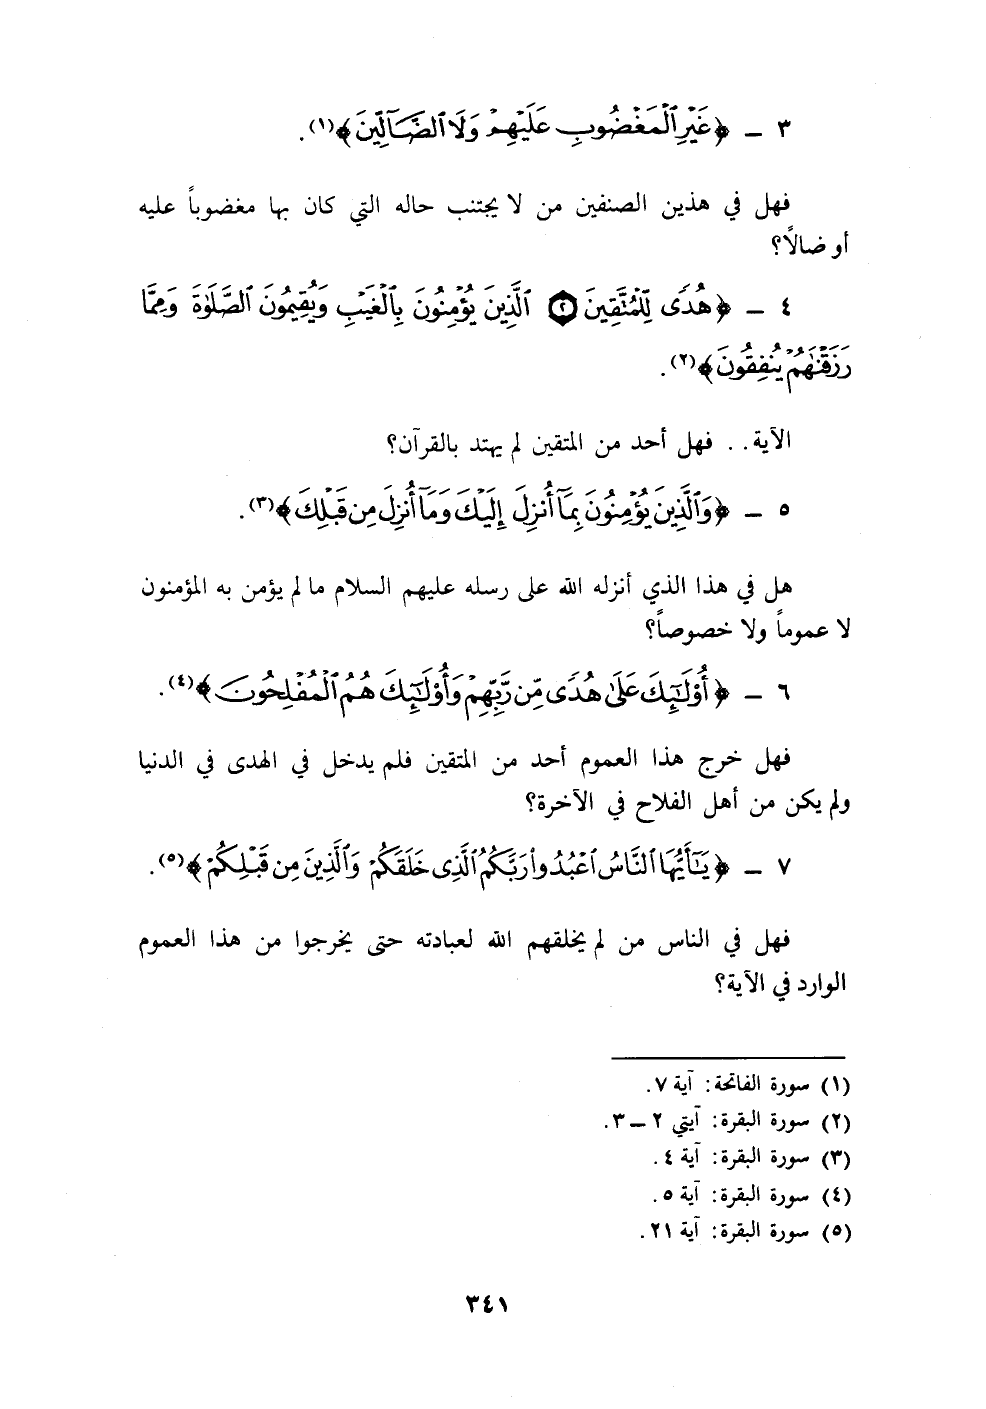 ٣ ــ ﴿غَيْرِ ٱلْمَغْضُوبِ عَلَيْهِمْ وَلَا ٱلضَّآلِّينَ﴾(١).
فهل في هذين الصنفين من لا يجتنب حاله التي كان بها مغضوباً عليه
أو ضالاً؟
٤ ــ ﴿هُدًى لِّلْمُتَّقِينَ ۝٢ ٱلَّذِينَ يُؤْمِنُونَ بِٱلْغَيْبِ وَيُقِيمُونَ ٱلصَّلَوٰةَ وَمِمَّا
رَزَقْنَٰهُمْ يُنفِقُونَ﴾(٢).
الآية.. فهل أحد من المتقين لم يهتد بالقرآن؟
٥ ــ ﴿وَٱلَّذِينَ يُؤْمِنُونَ بِمَآ أُنزِلَ إِلَيْكَ وَمَآ أُنزِلَ مِن قَبْلِكَ﴾(٣).
هل في هذا الذي أنزله الله على رسله عليهم السلام ما لم يؤمن به المؤمنون
لا عموماً ولا خصوصاً؟
٦ ــ ﴿أُوْلَٰٓئِكَ عَلَىٰ هُدًى مِّن رَّبِّهِمْ وَأُوْلَٰٓئِكَ هُمُ ٱلْمُفْلِحُونَ﴾(٤).
فهل خرج هذا العموم أحد من المتقين فلم يدخل في الهدى في الدنيا
ولم يكن من أهل الفلاح في الآخرة؟
٧ ــ ﴿يَٰٓأَيُّهَا ٱلنَّاسُ ٱعْبُدُواْ رَبَّكُمُ ٱلَّذِى خَلَقَكُمْ وَٱلَّذِينَ مِن قَبْلِكُمْ﴾(٥).
فهل في الناس من لم يخلقهم الله لعبادته حتى يخرجوا من هذا العموم
الوارد في الآية؟
(١) سورة الفاتحة: آية ٧.
(٢) سورة البقرة: آيتي ٢ ــ ٣.
(٣) سورة البقرة: آية ٤.
(٤) سورة البقرة: آية ٥.
(٥) سورة البقرة: آية ٢١.
٣٤١